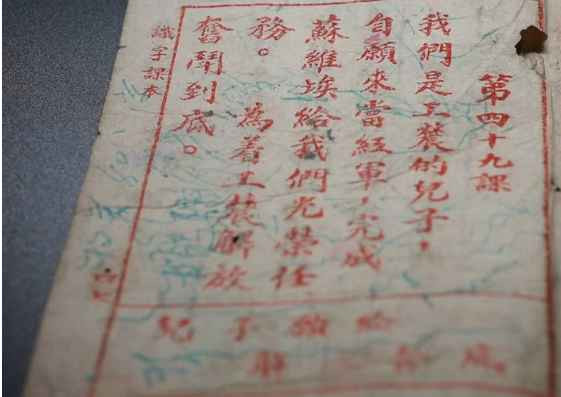 第四十九課
我們是工農的兒子，
自願來當紅軍，完成
蘇維埃給我們光榮任
務。為着工農解放
奮鬥到底。
識字課本
子
兒